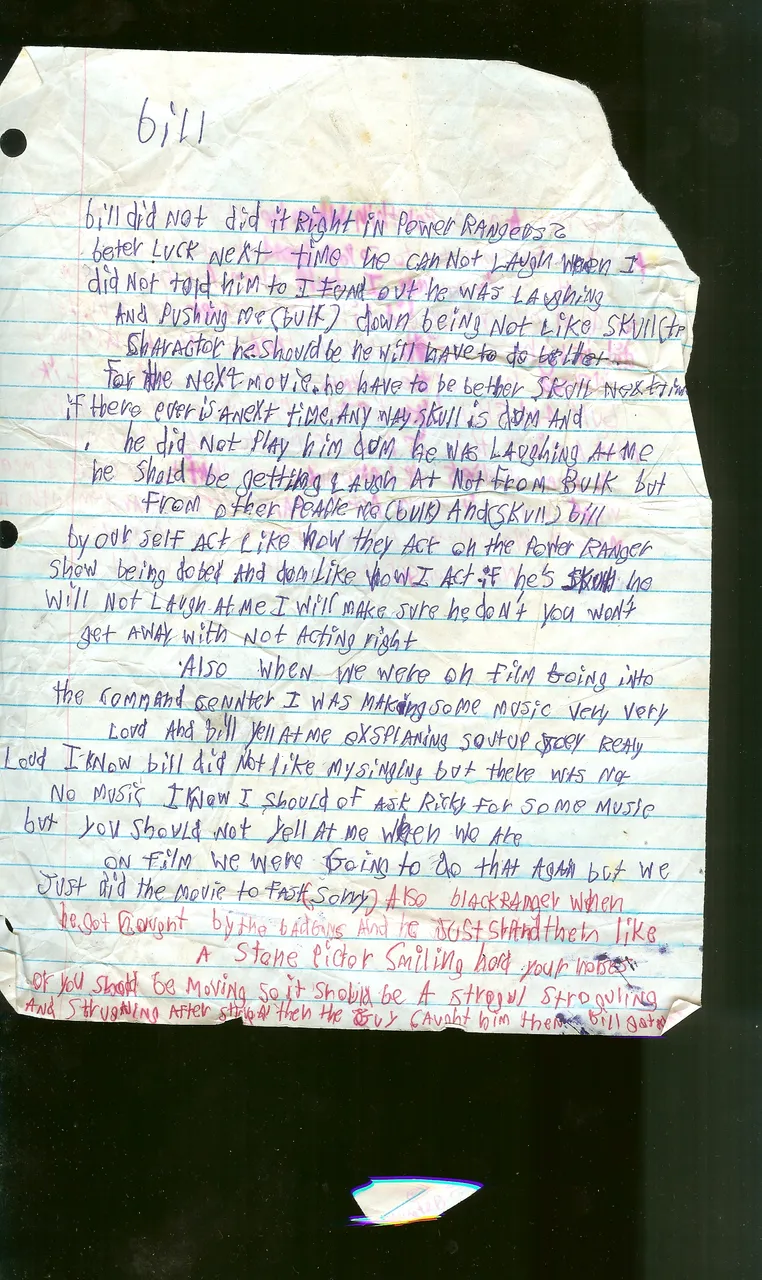 bill
bill did Not did it Right iN Power RANGERS 2
beter LUCK Next time he CAN Not LAUGH WHEN I
did Not told him to I FOND out he WAS LAUGHING
AND PUSHING Me (bulk) down being Not Like SKUll (te
SHARACTOR he should be he will have to do better
for the Next movie. he HAVE to be bether SKUll Next tim
if there ever is A Next time. ANY WAY SKUll is DUM AND
he did Not PLAY him DUM he WAS LAUGHING At Me
he Should be getting LAUGH At Not From BULK but
From other PeaPle Me (bulk) AND (SKUll) bill
by our self ACt Like How they Act on the Power RANGER
Show being and dom Like How I Act if he's SKUll he
Will Not LAUGH At Me I Will MAKE Sure he don't you won't
get AWAY with Not Acting right
Also WHEN We were on FiLM Going into
the COMMAND CeNNter I WAS MAKing some music Very Very
LOUD AND bill Yell At Me eXSPLANING SOUtUP JOEY ReALy
Loud I KNow bill did Not Like My SINGING but there WAS No
No MUSIC I KNow I Should of ASK RicKy For Some Music
but you Should Not Yell At Me WHEN We Are
ON FILM We were Going to do that AGAIN but we
Just did the Movie to FAST (Sorry) Also bLACKRANGER WHEN
he got by the bADGUYS AND he JUST StAND then LiKE
A StoNe Pictor SMiling hold your horses
or you Should be Moving so it Should be A Strogul StroGuLiNg
AND After then the Guy CAUGHt him then bill